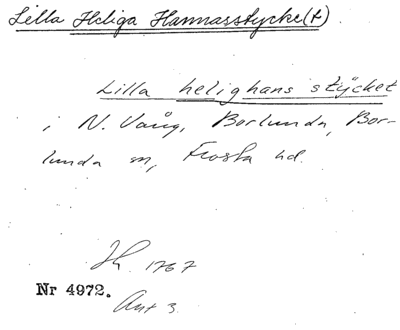 Lilla Heliga Hannasstycke(t)
Lilla helighans stycket
i N. Vång, Borlunda, Bor-
lunda sn, Frosta hd.
Jb. 1767
Nr 4972.
Akt 3